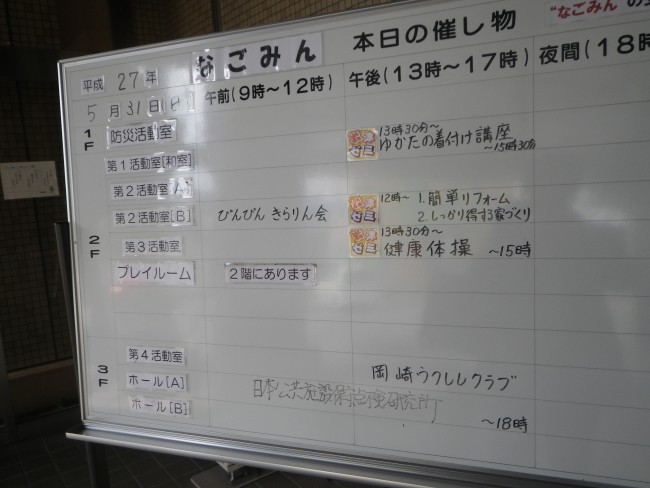 なごみん
本日の催し物
"なごみん"の
平成 27年
5月31日(日)
午前(9時～12時)
午後(13時～17時)
夜間(18時
1F
防災活動室
13時30分～
ゆかたの着付け講座
～15時30分
第1活動室[和室]
第2活動室[A]
2F
第2活動室[B]
びんびん きらりん会
ゼミ
12時～ 1. 簡単リフォーム
2. しっかり得する家づくり
第3活動室
ゼミ
13時30分～
健康体操 ～15時
プレイルーム
2階にあります
3F
第4活動室
ホール[A]
岡崎ウクレレクラブ
日本公共施設保全点検研究所
ホール[B]
～18時